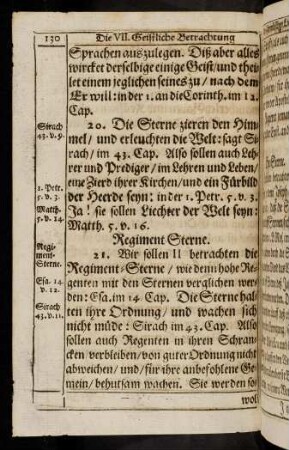 130
Die VII. Geistliche Betrachtung
Sprachen auszulegen. Diß aber alles
wircket derselbige einige Geist / und thei-
let einem jeglichen seines zu / nach dem
Er will: in der 1. an die Corinth. im 12.
Cap.
Sirach
43. v. 9.
20. Die Sterne zieren den Him-
mel / und erleuchten die Welt: sagt Si-
rach / im 43. Cap. Also sollen auch Leh-
rer und Prediger / im Lehren und Leben /
eine Zierd ihrer Kirchen / und ein Fürbild
1. Petr.
5. v. 3.
der Heerde seyn: in der 1. Petr. 5. v. 3.
Matth.
5. v. 14.
Ja! sie sollen Liechter der Welt seyn:
Matth. 5. v. 16.
Regiment Sterne.
Regi-
ment-
Sterne.
21. Wir sollen II betrachten die
Regiment-Sterne / wie denn hohe Re-
genten mit den Sternen verglichen wer-
Esa. 14.
v. 12.
den: Esa. im 14 Cap. Die Sterne hal-
ten ihre Ordnung / und wachen sich
Sirach
43. v. 11.
nicht müde: Sirach im 43. Cap. Also
sollen auch Regenten in ihren Schran-
cken verbleiben / von guter Ordnung nicht
abweichen / und / für ihre anbefohlene Ge-
mein / behutsam wachen. Sie werden sol-
woll